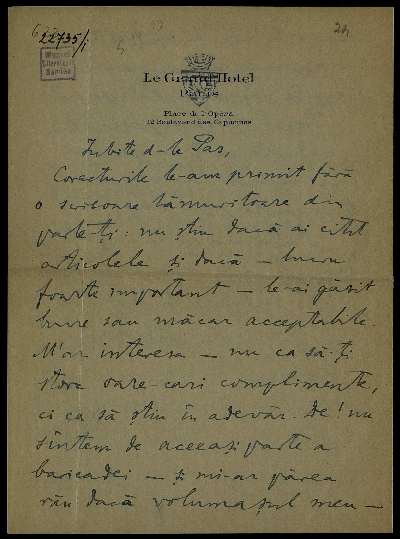 22735/i
24
Muzeul
Literaturii
Române
Le Grand Hotel
Paris
Place de l'Opéra
12 Boulevard des Capucines
Iubite d-le Pas,
Corecturile le-am primit fără
o scrisoare lămuritoare din
parte-ți: nu știu dacă ai citit
articolele și dacă — lucru
foarte important — le-ai găsit
bune sau măcar acceptabile.
M'ar interesa — nu ca să-ți
storc oare-cari complimente,
ci ca să știu în adevăr. De! nu
sîntem de aceeași parte a
baricadei — și mi-ar părea
rău dacă volumașul meu —